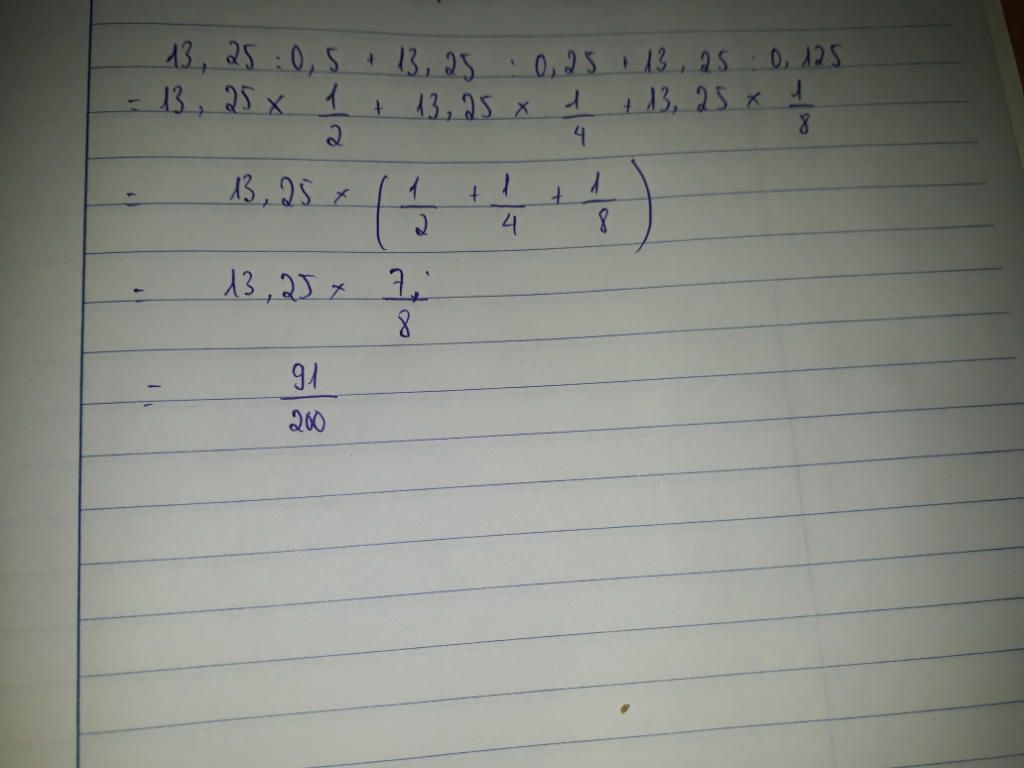 13, 25 : 0, 5 + 13, 25 : 0, 25 + 13, 25 : 0, 125
= 13, 25 × 1/2 + 13, 25 × 1/4 + 13, 25 × 1/8
= 13, 25 × (1/2 + 1/4 + 1/8)
= 13, 25 × 7/8
= 91/200